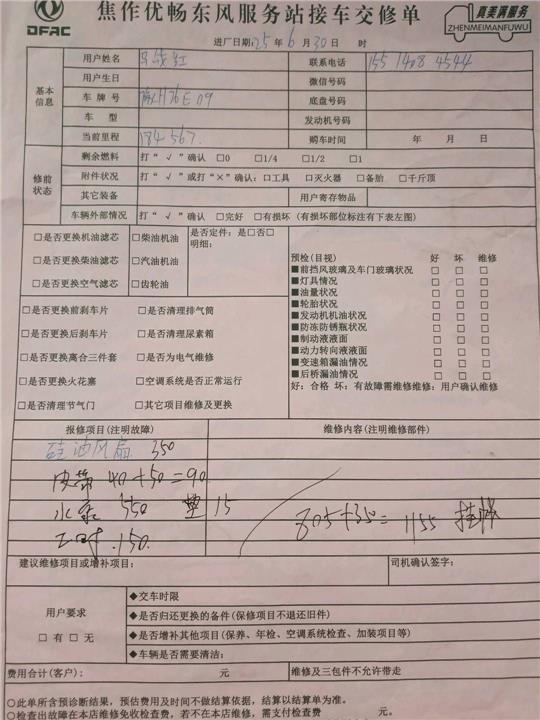 焦作优畅东风服务站接车交修单
DFAC
真美满服务
ZHENMEIMANFUWU
进厂日期:25年6月30日 时
基本信息
用户姓名 联系电话 155 1408 4544
用户生日 微信号码
车牌号 H76E09 底盘号码
车 型 发动机号码
当前里程 184567. 购车时间 年 月 日
修前状态
剩余燃料 打“√”确认 □0 □1/4 □1/2 □1
附件状况 打“√”或打“×”确认:□工具 □灭火器 □备胎 □千斤顶
其它装备 用户寄存物品
车辆外部情况 打“√”确认 □完好 □有损坏(有损坏部位标注有下表左图)
□是否更换机油滤芯 □柴油机油 是否定件:是□否□
明细:
□是否更换柴油滤芯 □汽油机油
□是否更换空气滤芯 □齿轮油
预检(目视) 好 坏 维修
■前挡风玻璃及车门玻璃状况 □ □ □
■灯具情况 □ □ □
■油量状况 □ □ □
■轮胎状况 □ □ □
■发动机机油状况 □ □ □
■防冻防锈瓶状况 □ □ □
■制动液液面 □ □ □
■动力转向液液面 □ □ □
■变速箱漏油情况 □ □ □
■后桥漏油情况 □ □ □
好:合格 坏:有故障需维修维修:用户确认维修
□是否更换前刹车片 □是否清理排气筒
□是否更换后刹车片 □是否清理尿素箱
□是否更换离合三件套 □是否为电气维修
□是否更换火花塞 □空调系统是否正常运行
□是否清理节气门 □其它项目维修及更换
报修项目(注明故障) 维修内容(注明维修部件)
硅油风扇 350
皮带 40+50=90
水泵 550 垫 15
工时.150. 805+350=1155 挂账
建议维修项目或增补项目: 司机确认签字:
用户要求
□有□无
◆交车时限
◆是否归还更换的备件(保修项目不退还旧件)
◆是否增补其他项目(保养、年检、空调系统检查、加装项目等)
◆车辆是否需要清洁:
费用合计(客户): 元 维修及三包件不允许带走
○此单所含预诊断结果,预估费用及时间不做结算依据,结算以结算单为准。
○检查出故障在本店维修免收检查费,若不在本店维修,需支付检查费 元。